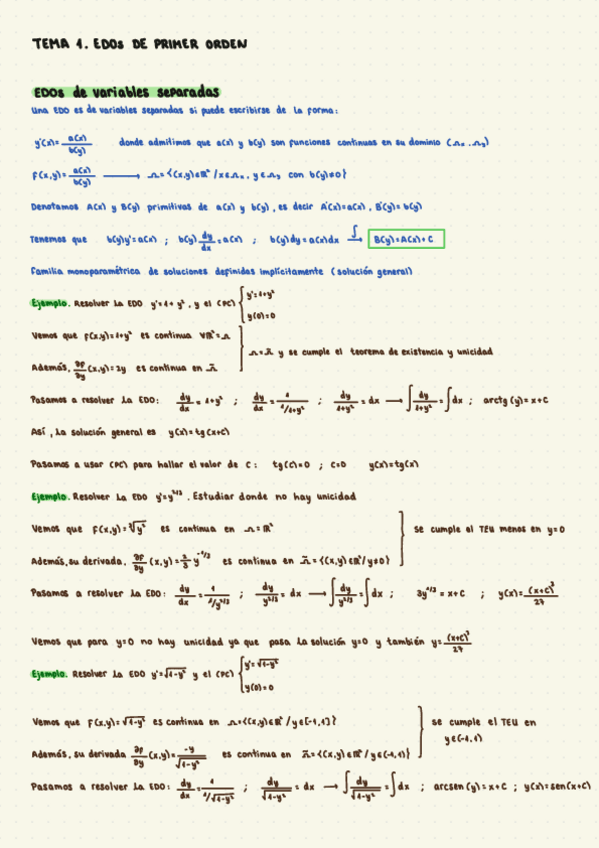 TEMA 1. EDOs DE PRIMER ORDEN
EDOs de variables separadas
Una EDO es de variables separadas si puede escribirse de la forma:
y'(x)= a(x)/b(y) donde admitimos que a(x) y b(y) son funciones continuas en su dominio (Ωₓ, Ωᵧ)
f(x,y)= a(x)/b(y) ⟶ Ω={(x,y)∈ℝ² / x∈Ωₓ, y∈Ωᵧ con b(y)≠0}
Denotamos A(x) y B(y) primitivas de a(x) y b(y), es decir A'(x)=a(x), B'(y)=b(y)
Tenemos que b(y)y'=a(x) ; b(y) dy/dx = a(x) ; b(y)dy=a(x)dx ∫⟶ B(y)=A(x)+C
Familia monoparamétrica de soluciones definidas implícitamente (solución general)
Ejemplo. Resolver la EDO y'=1+y², y el (PC) { y'=1+y²
y(0)=0
Vemos que f(x,y)=1+y² es continua ∀ℝ²=Ω
Ω=Ω̃ y se cumple el teorema de existencia y unicidad
Además, ∂f/∂y (x,y)=2y es continua en Ω̃
Pasamos a resolver la EDO: dy/dx = 1+y² ; dy/dx = 1/(1/1+y²) ; dy/(1+y²) = dx ⟶ ∫ dy/(1+y²) = ∫dx ; arctg(y)=x+C
Así, la solución general es y(x)=tg(x+c)
Pasamos a usar (PC) para hallar el valor de C: tg(c)=0 ; C=0 y(x)=tg(x)
Ejemplo. Resolver la EDO y'=y^(2/3). Estudiar donde no hay unicidad
Vemos que f(x,y)=∛y² es continua en Ω=ℝ²
se cumple el TEU menos en y=0
Además, su derivada, ∂f/∂y (x,y)= 2/3 y^(-1/3) es continua en Ω̃={(x,y)∈ℝ²/y≠0}
Pasamos a resolver la EDO: dy/dx = 1/(1/y^(2/3)) ; dy/y^(2/3) = dx ⟶ ∫ dy/y^(2/3) = ∫dx ; 3y^(1/3) = x+C ; y(x)= (x+C)³/27
Vemos que para y=0 no hay unicidad ya que pasa la solución y=0 y también y= (x+C)³/27
Ejemplo. Resolver la EDO y'=√1-y² y el (PC) { y'=√1-y²
y(0)=0
Vemos que f(x,y)=√1-y² es continua en Ω={(x,y)∈ℝ² / y∈[-1,1]}
se cumple el TEU en
y∈(-1,1)
Además, su derivada ∂f/∂y (x,y)= -y/√1-y² es continua en Ω̃={(x,y)∈ℝ² / y∈(-1,1)}
Pasamos a resolver la EDO: dy/dx = 1/(1/√1-y²) ; dy/√1-y² = dx ⟶ ∫ dy/√1-y² = ∫dx ; arcsen(y)=x+C ; y(x)=sen(x+C)